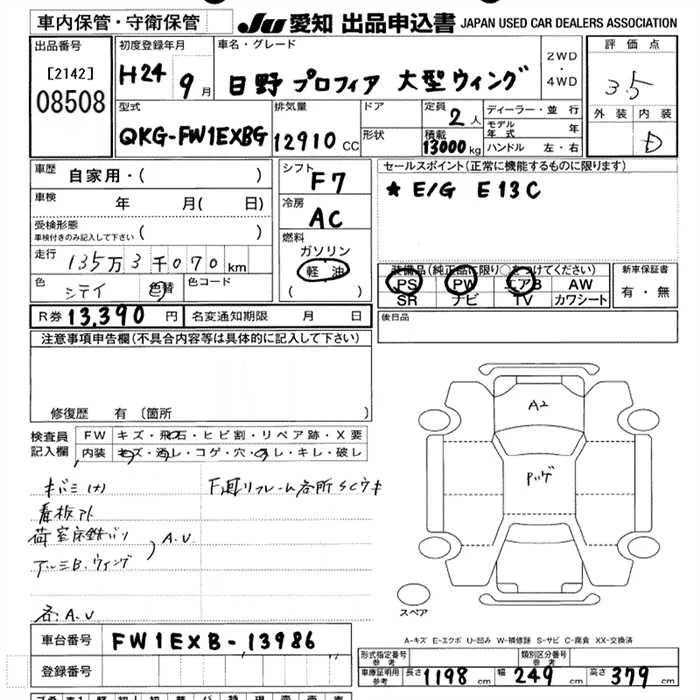 車内保管・守衛保管 JU 愛知 出品申込書 JAPAN USED CAR DEALERS ASSOCIATION
出品番号 初度登録年月 車名・グレード 評価点
[2142] H24 9月 日野 プロフィア 大型ウィング 2WD・4WD 3.5
08508 型式 排気量 ドア 定員 2人 ディーラー・並行 外装 内装
QKG-FW1EXBG 12910CC 形状 積載 13000kg モデル年式 年 ハンドル 左・右 D
車歴 自家用・( ) シフト F7 セールスポイント(正常に機能するものに限ります)
車検 年 月( 日) 冷房 AC * E/G E13C
受検形態 車検付きのみ記入して下さい ( ) 燃料
走行 135万3千070km ガソリン 軽油 ( )
装備品(純正品に限り○をつけてください) 新車保証書
色 シテイ 色替 色コード PS PW エアB AW 有・無
SR ナビ TV カワシート
R券 13,390円 名変通知期限 月 日 後日品
注意事項申告欄(不具合内容等は具体的に記入して下さい)
修復歴 有 [箇所 ]
検査員記入欄 FW キズ・飛石・ヒビ割・リペア跡・X要
内装 キズ・汚レ・コゲ・穴・スレ・キレ・破レ
A2
キバミ(ナ) 下廻リフレーム各所SCウキ
看板アト
荷室床鉄バリ
アルミB.ウィング A.U
各:A.U
スペア
A-キズ E-エクボ U-凹み W-補修跡 S-サビ C-腐食 XX-交換済
車台番号 FW1EXB-13986
登録番号
形式指定番号 参考 類別区分番号 参考
車庫証明用 参考 長さ 1198cm 幅 249cm 高さ 379cm